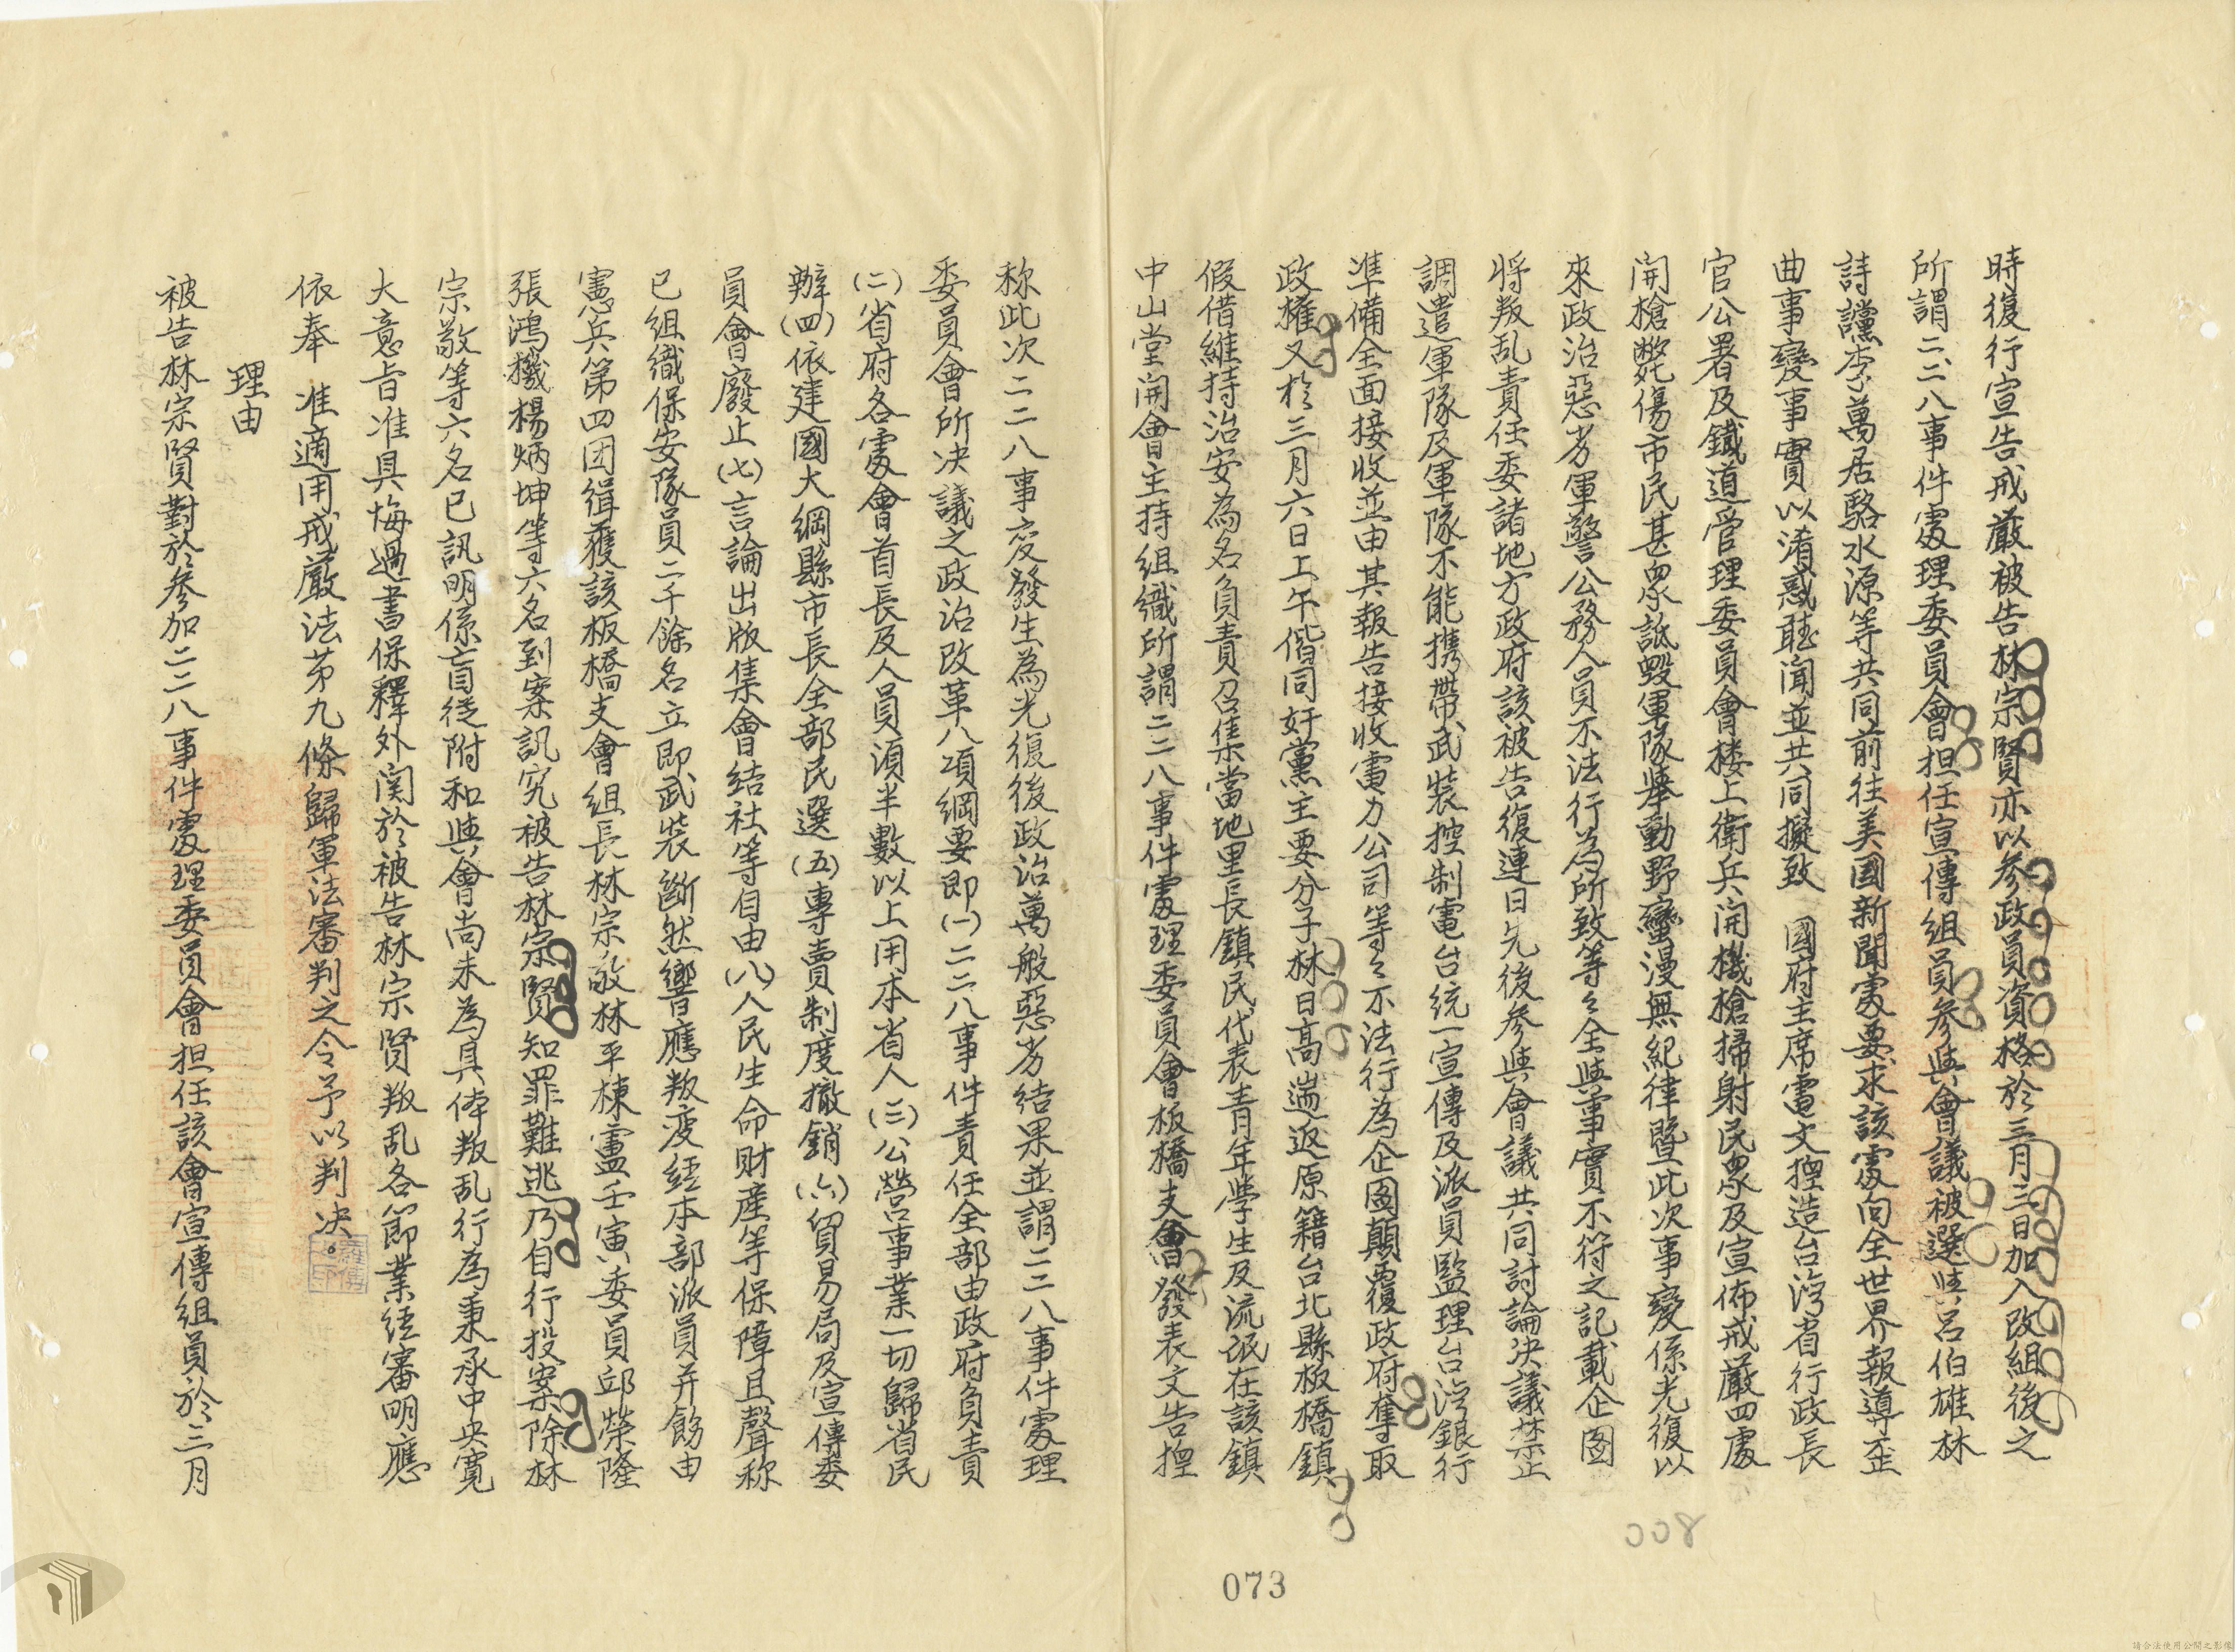 時復行宣告戒嚴被告林宗賢亦以参政員資格於三月三日加入改組後之
所謂二、二八事件處理委員會担任宣傳組員参與會議被選與呂伯雄林
詩讜李萬居駱水源等共同前往美國新聞處要求該處向全世界報導歪
曲事變事實以淆惑聽聞並共同擬致 國府主席電文揑造台湾省行政長
官公署及鐵道管理委員會楼上衛兵開機槍掃射民眾及宣佈戒嚴四處
開槍斃傷市民甚眾詆毀軍隊舉動野蠻漫無紀律暨此次事變係光復以
來政治惡劣軍警公務人員不法行為所致等々全與事實不符之記載企圖
将叛乱責任委諸地方政府該被告復連日先後参與會議共同討論决議禁止
調遣軍隊及軍隊不能携帶武裝控制電台統一宣傳及派員監理台湾銀行
準備全面接收並由其報告接收電力公司等々不法行為企圖顛覆政府奪取
政權又於三月六日上午偕同奸黨主要分子林日高遄返原籍台北縣板橋鎮
假借維持治安為名負責召集當地里長鎮民代表青年學生及流氓在該鎮
中山堂開會主持組織所謂二二八事件處理委員會板橋支會發表文告揑
称此次二二八事変發生為光復後政治萬般惡劣結果並謂二二八事件處理
委員會所决議之政治改革八項綱要即(一)二二八事件責任全部由政府負責
(二)省府各處會首長及人員須半數以上用本省人(三)公營事業一切歸省民
辦(四)依建國大綱縣市長全部民選(五)專賣制度撤銷(六)貿易局及宣傳委
員會廢止(七)言論出版集會結社等自由(八)人民生命財産等保障且聲称
已組織保安隊員二千餘名立即武裝斷然響應叛変経本部派員并飭由
憲兵第四团緝獲該板橋支會組長林宗敬林平棟盧壬寅委員邱榮隆
張鴻機楊炳坤等六名到案訊究被告林宗賢知罪難逃乃自行投案除林
宗敬等六名已訊明係盲從附和與會尚未為具体叛乱行為秉承中央寬
大意旨准具悔過書保釋外関於被告林宗賢叛乱各節業経審明應
依奉 准適用戒嚴法第九條歸軍法審判之令予以判决。
理由
被告林宗賢對於参加二二八事件處理委員會担任該會宣傳組員於三月
008
073
請合法使用公開之影像